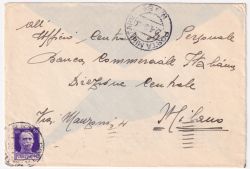 All'
Ufficio Centrale Personale
Banca Commerciale Italiana
Direzione Centrale
Via Manzoni, 4
Milano
POSTA MILIT